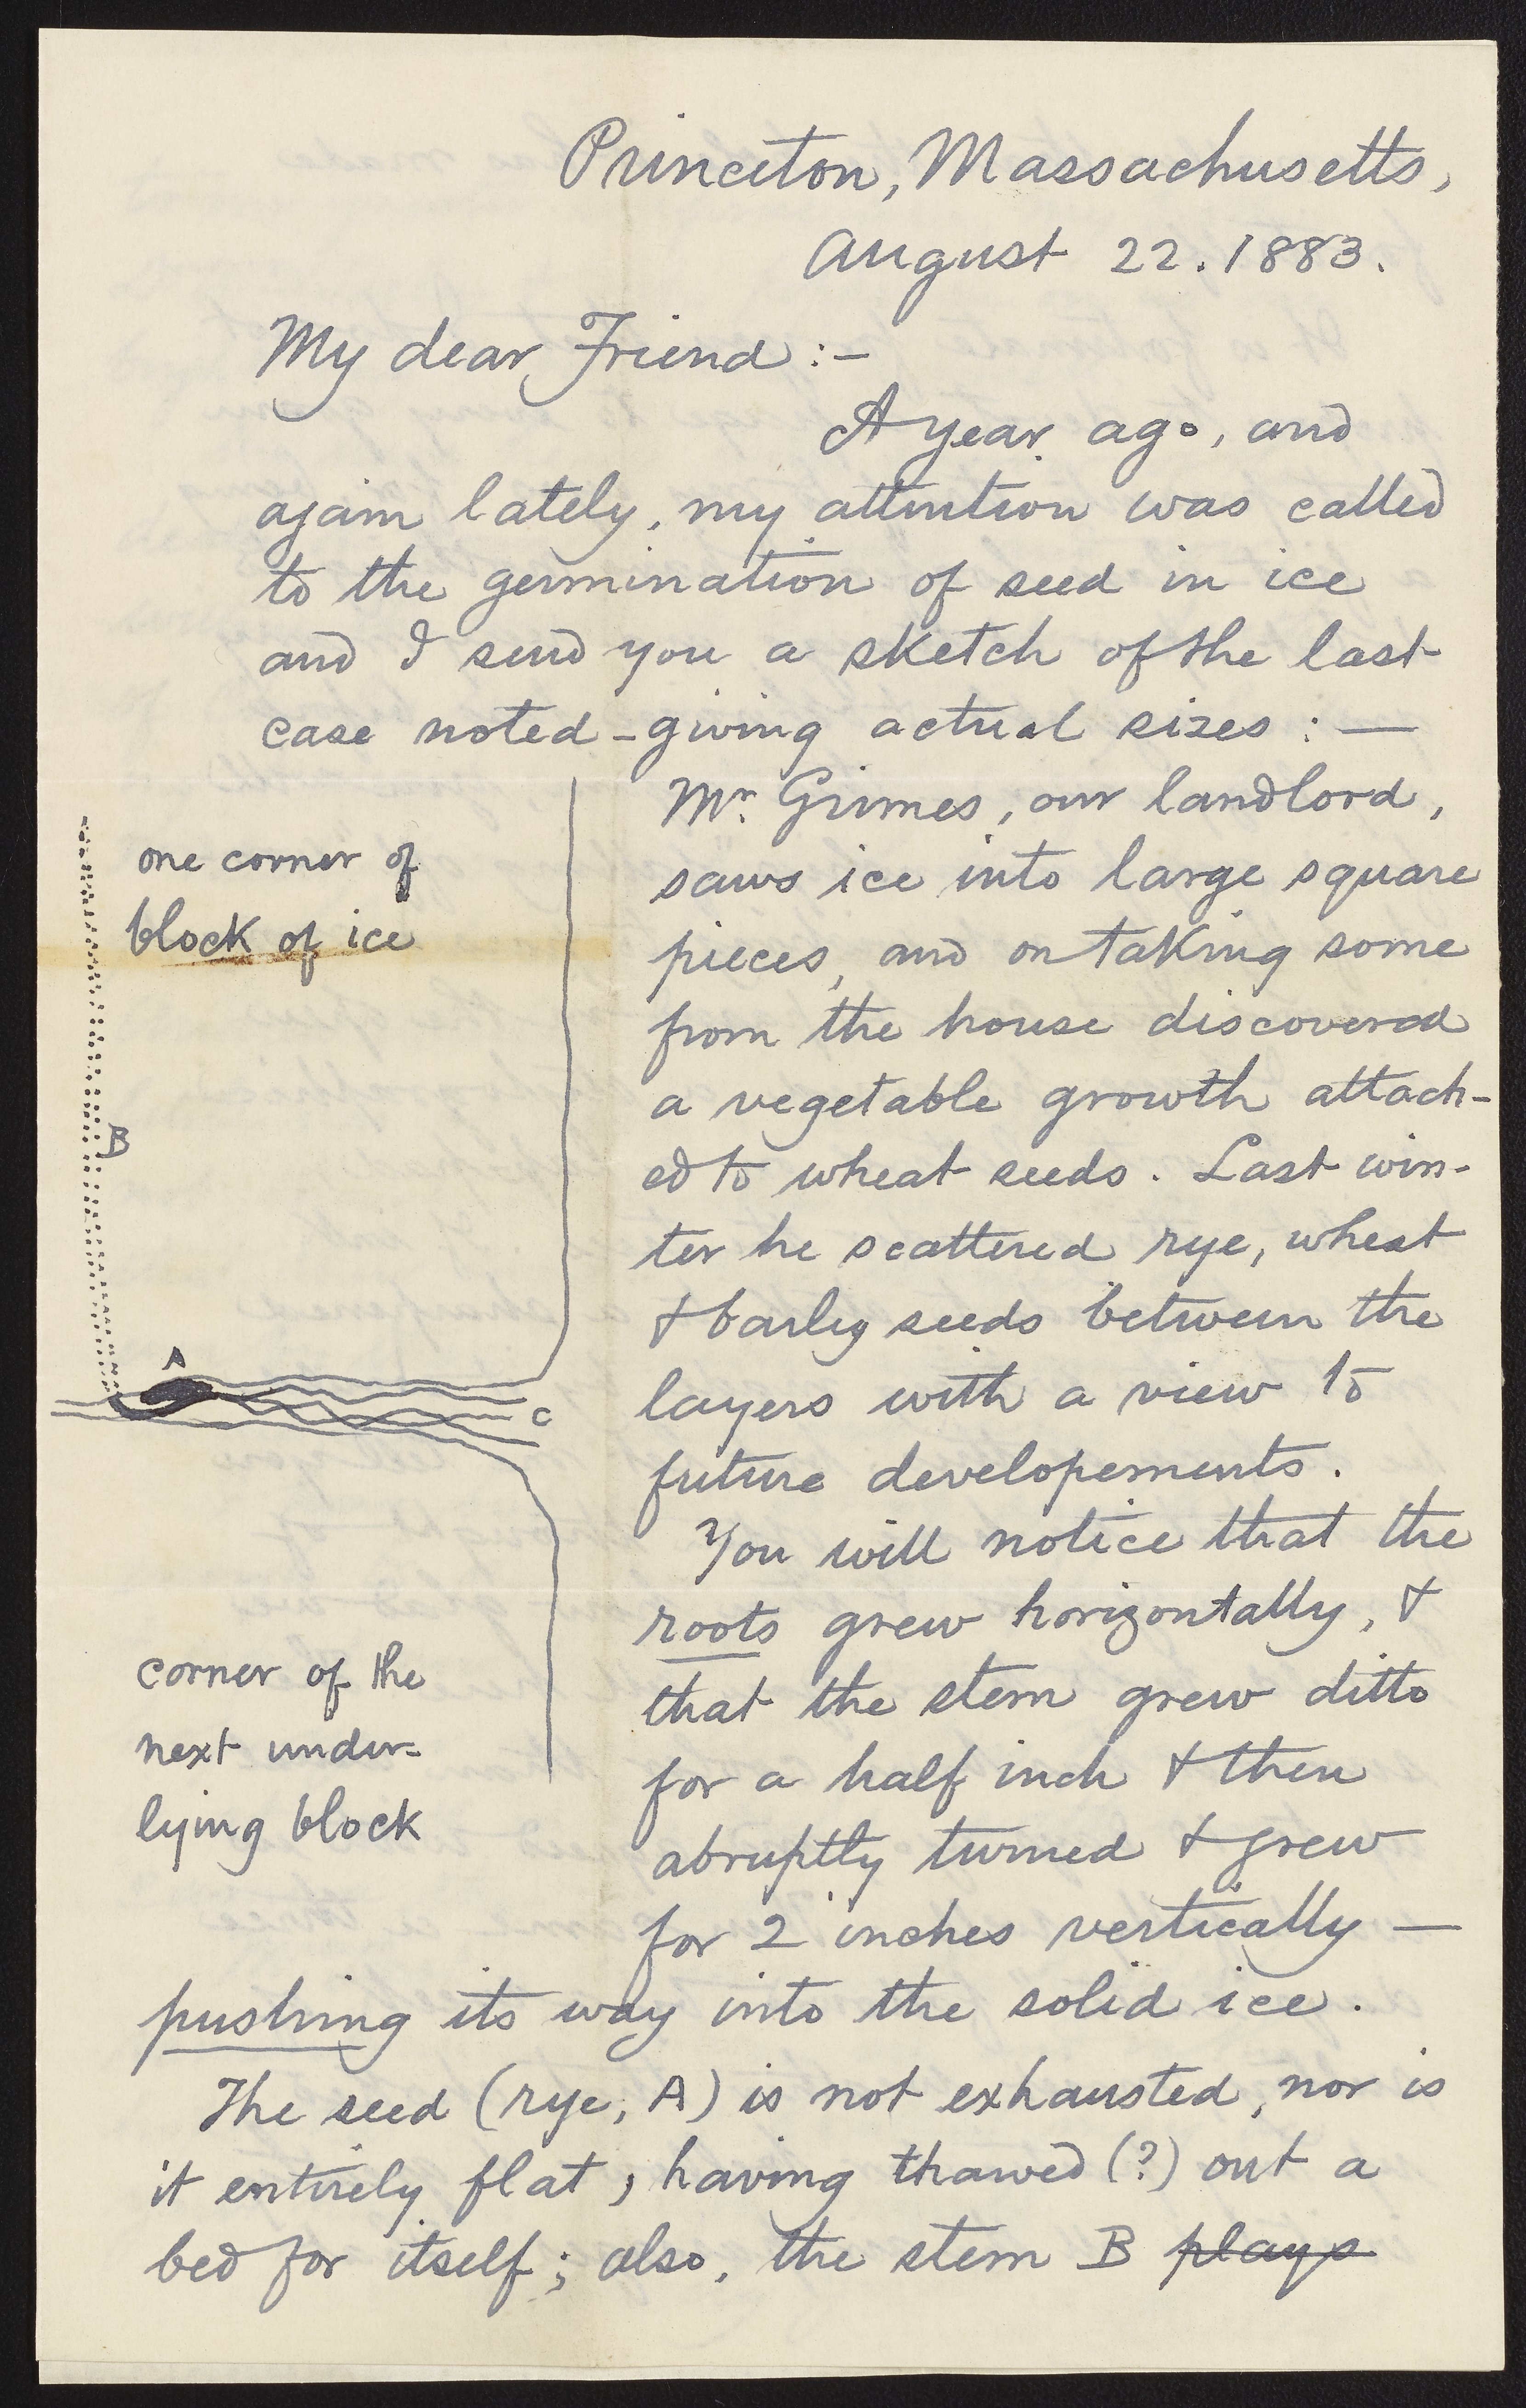 Princeton, Massachusetts,
August 22. 1883.
My dear Friend :-
A year ago, and
again lately, my attention was called
to the germination of seed in ice
and I send you a sketch of the last
case noted - giving actual sizes : —
one corner of
block of ice
B
A
C
corner of the
next under-
lying block
Mr. Grimes, our landlord,
saws ice into large square
pieces, and on taking some
from the house discovered
a vegetable growth attach-
ed to wheat seeds. Last win-
ter he scattered rye, wheat
& barley seeds between the
layers with a view to
future developements.
You will notice that the
roots grew horizontally, &
that the stem grew ditto
for a half inch & then
abruptly turned & grew
for 2 inches vertically —
pushing its way into the solid ice.
The seed (rye, A) is not exhausted, nor is
it entirely flat, having thawed (?) out a
bed for itself; also, the stem B plays